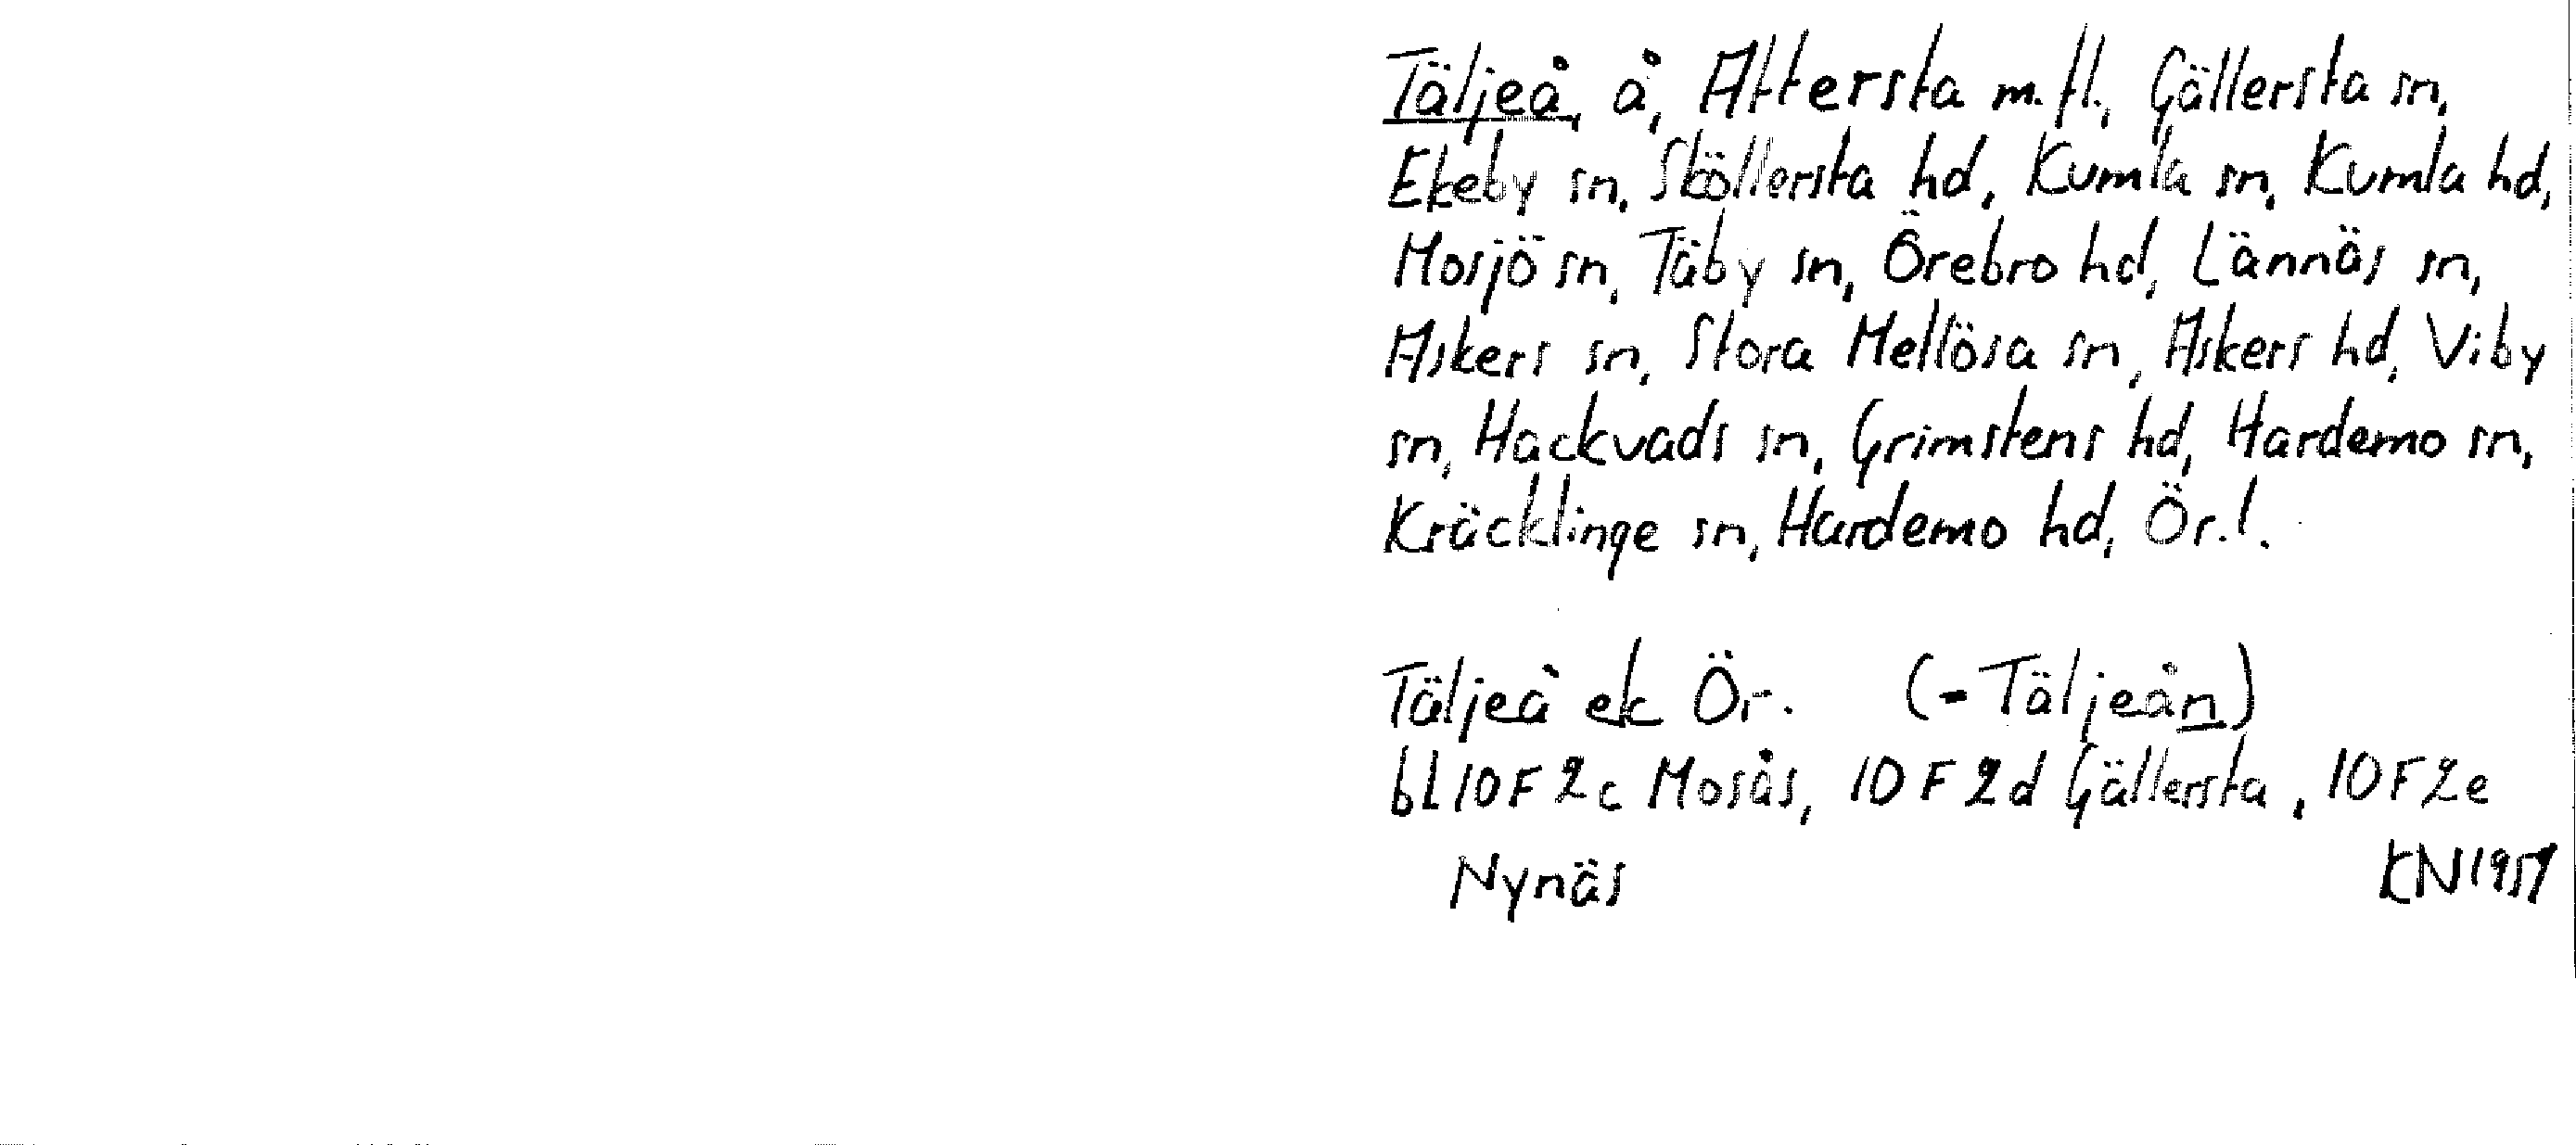 Täljeå, å, Attersta m.fl., Gällersta sn,
Ekeby sn, Sköllersta hd, Kumla sn, Kumla hd,
Mosjö sn, Täby sn, Örebro hd, Lännäs sn,
Askers sn, Stora Mellösa sn, Askers hd, Viby
sn, Hackvads sn, Grimstens hd, Hardemo sn,
Kräcklinge sn, Hardemo hd, Ör.l.
Täljeå ek Ör. (= Täljeån)
bl 10F 2c Mosås, 10F 2d Gällersta, 10F 2e
Nynäs KN 1957